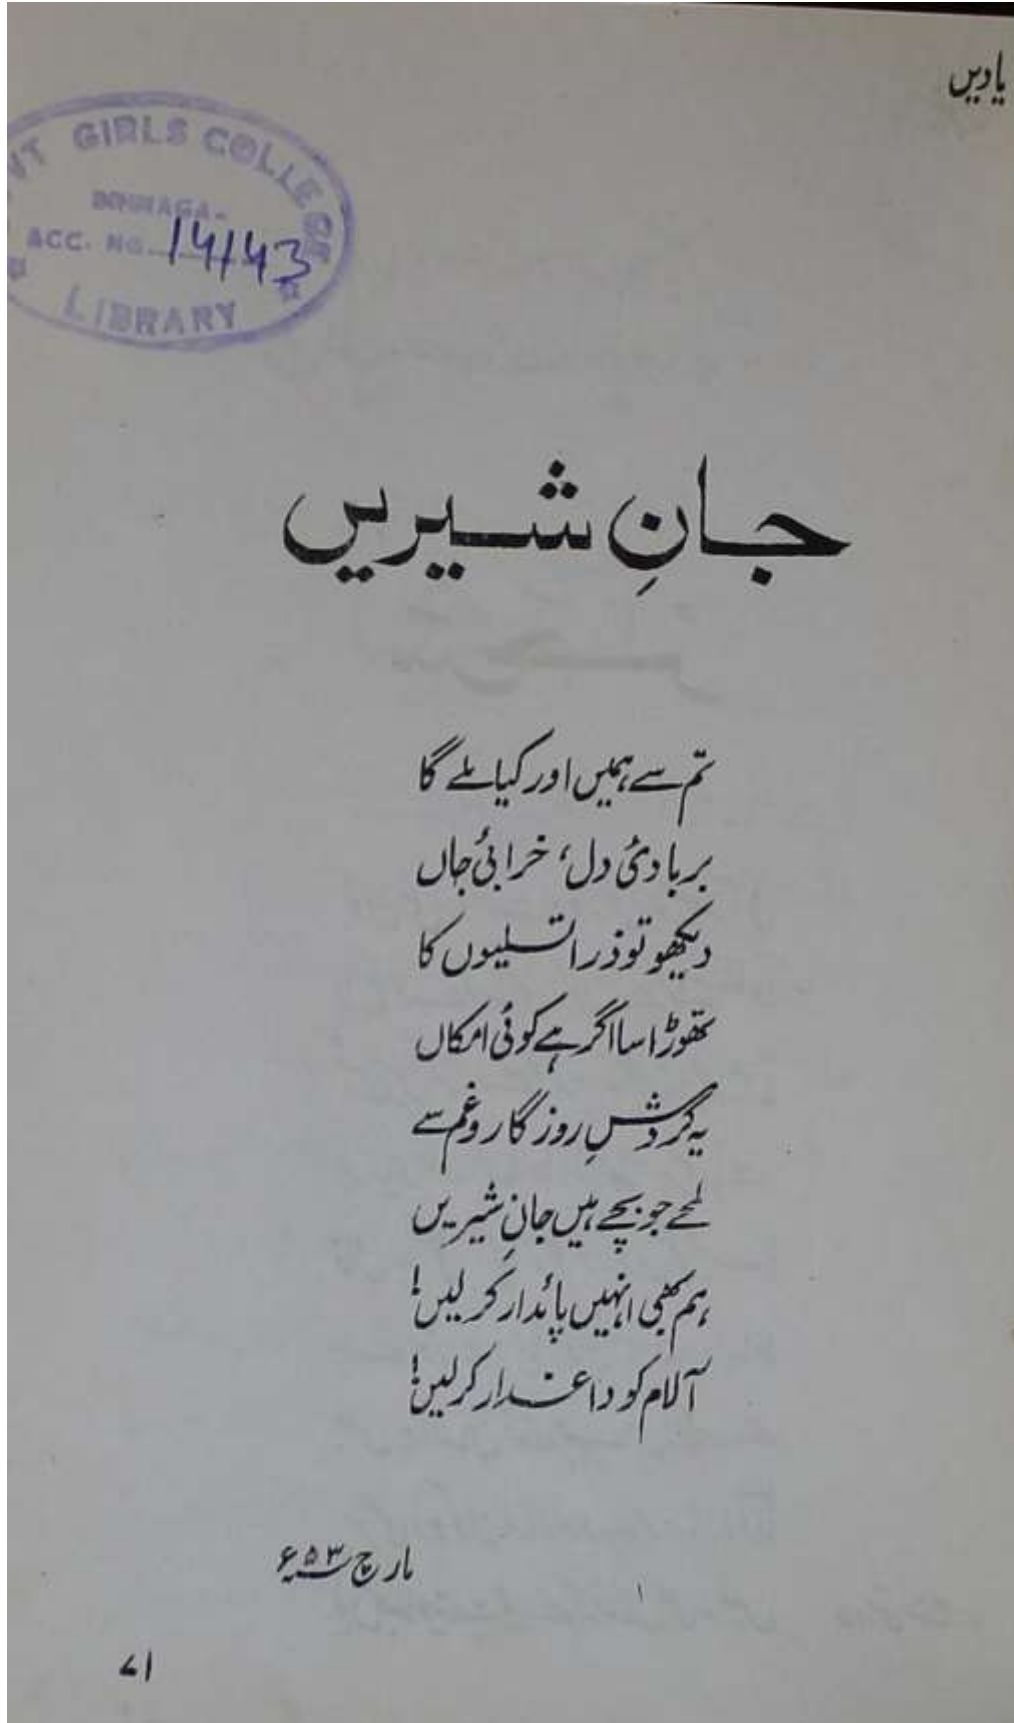 یادیں
VT GIRLS COLLEGE
ACC. NO. 14143
LIBRARY
جانِ شیریں
تم سے ہمیں اور کیا ملے گا
بربادیٔ دل، خرابیٔ جاں
دیکھو تو ذرا تسلیوں کا
تھوڑا سا اگر ہے کوئی امکاں
یہ گردشِ روزگار و غم سے
لمحے جو بچے ہیں جانِ شیریں
ہم بھی انہیں پائدار کرلیں!
آلام کو داغدار کرلیں!
مارچ ۵۳ء
۷۱